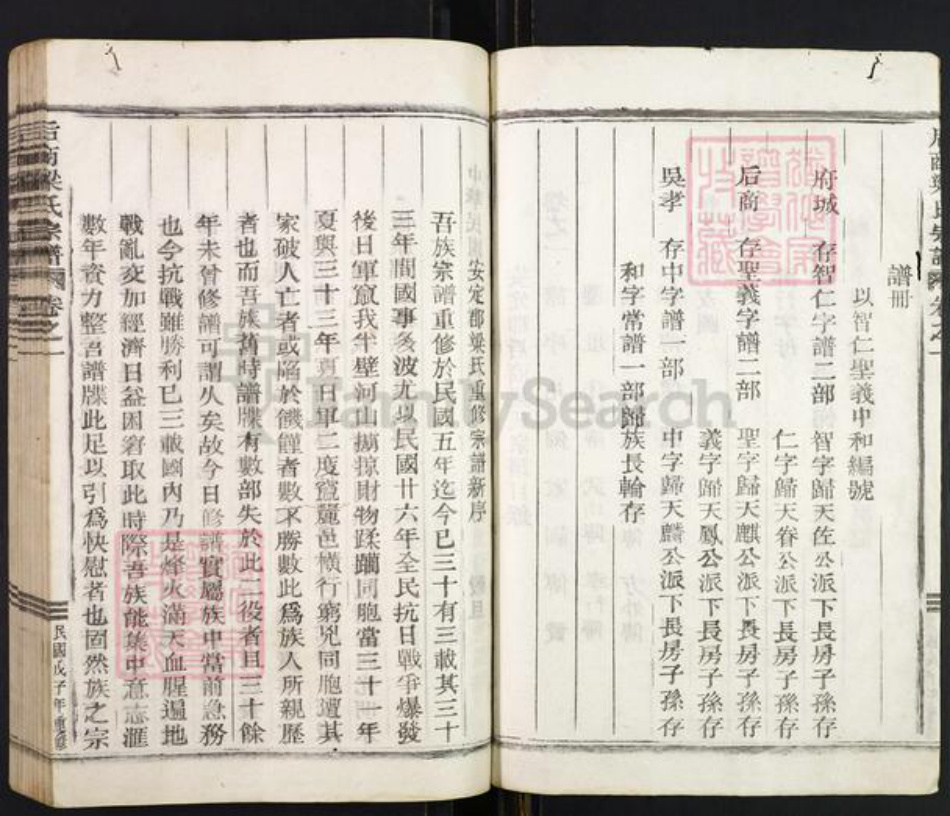 譜冊
以智仁聖義中和編號
府城 存智仁字譜二部 智字歸天佐公派下長房子孫存
仁字歸天眷公派下長房子孫存
后商 存聖義字譜二部 聖字歸天麒公派下長房子孫存
義字歸天鳳公派下長房子孫存
吳孝 存中字譜一部 中字歸天麟公派下長房子孫存
和字常譜一部歸族長輪存
安定郡梁氏重修宗譜新序
吾族宗譜重修於民國五年迄今已三十有三載其三十
三年間國事多波尤以民國廿六年全民抗日戰爭爆發
後日軍竄我半壁河山擄掠財物蹂躪同胞當三十一年
夏與三十三年 日軍二度竄麗邑橫行窮兇同胞遭其
家破人亡者或陷於饑饉者數不勝數此爲族人所親歷
者也而吾族舊時譜牒有數部失於此二役者且三十餘
年未曾修譜可謂久矣故今日修譜實屬族中當前急務
也今抗戰雖勝利已三載國內乃是烽火滿天血腥遍地
戰亂交加經濟日益困窘取此時際吾族能集中意志滙
數年資力整吾譜牒此足以引爲快慰者也固然族之宗
后商梁氏宗譜 卷之一
民國戊子年重修
FamilySearch